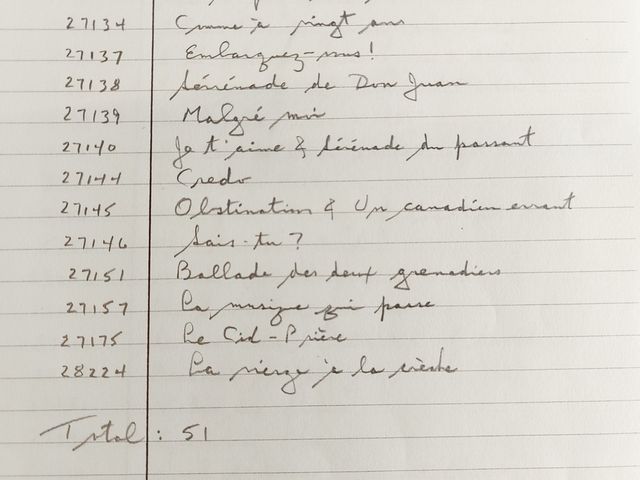 27134 Comme à vingt ans
27137 Embarquez-vous!
27138 Sérénade de Don Juan
27139 Malgré moi
27140 Je t'aime & Sérénade du passant
27144 Credo
27145 Obstination & Un canadien errant
27146 Sais-tu?
27151 Ballade des deux grenadiers
27157 La musique qui passe
27175 Le Cid - Prière
28224 La vierge à la crèche
Total: 51